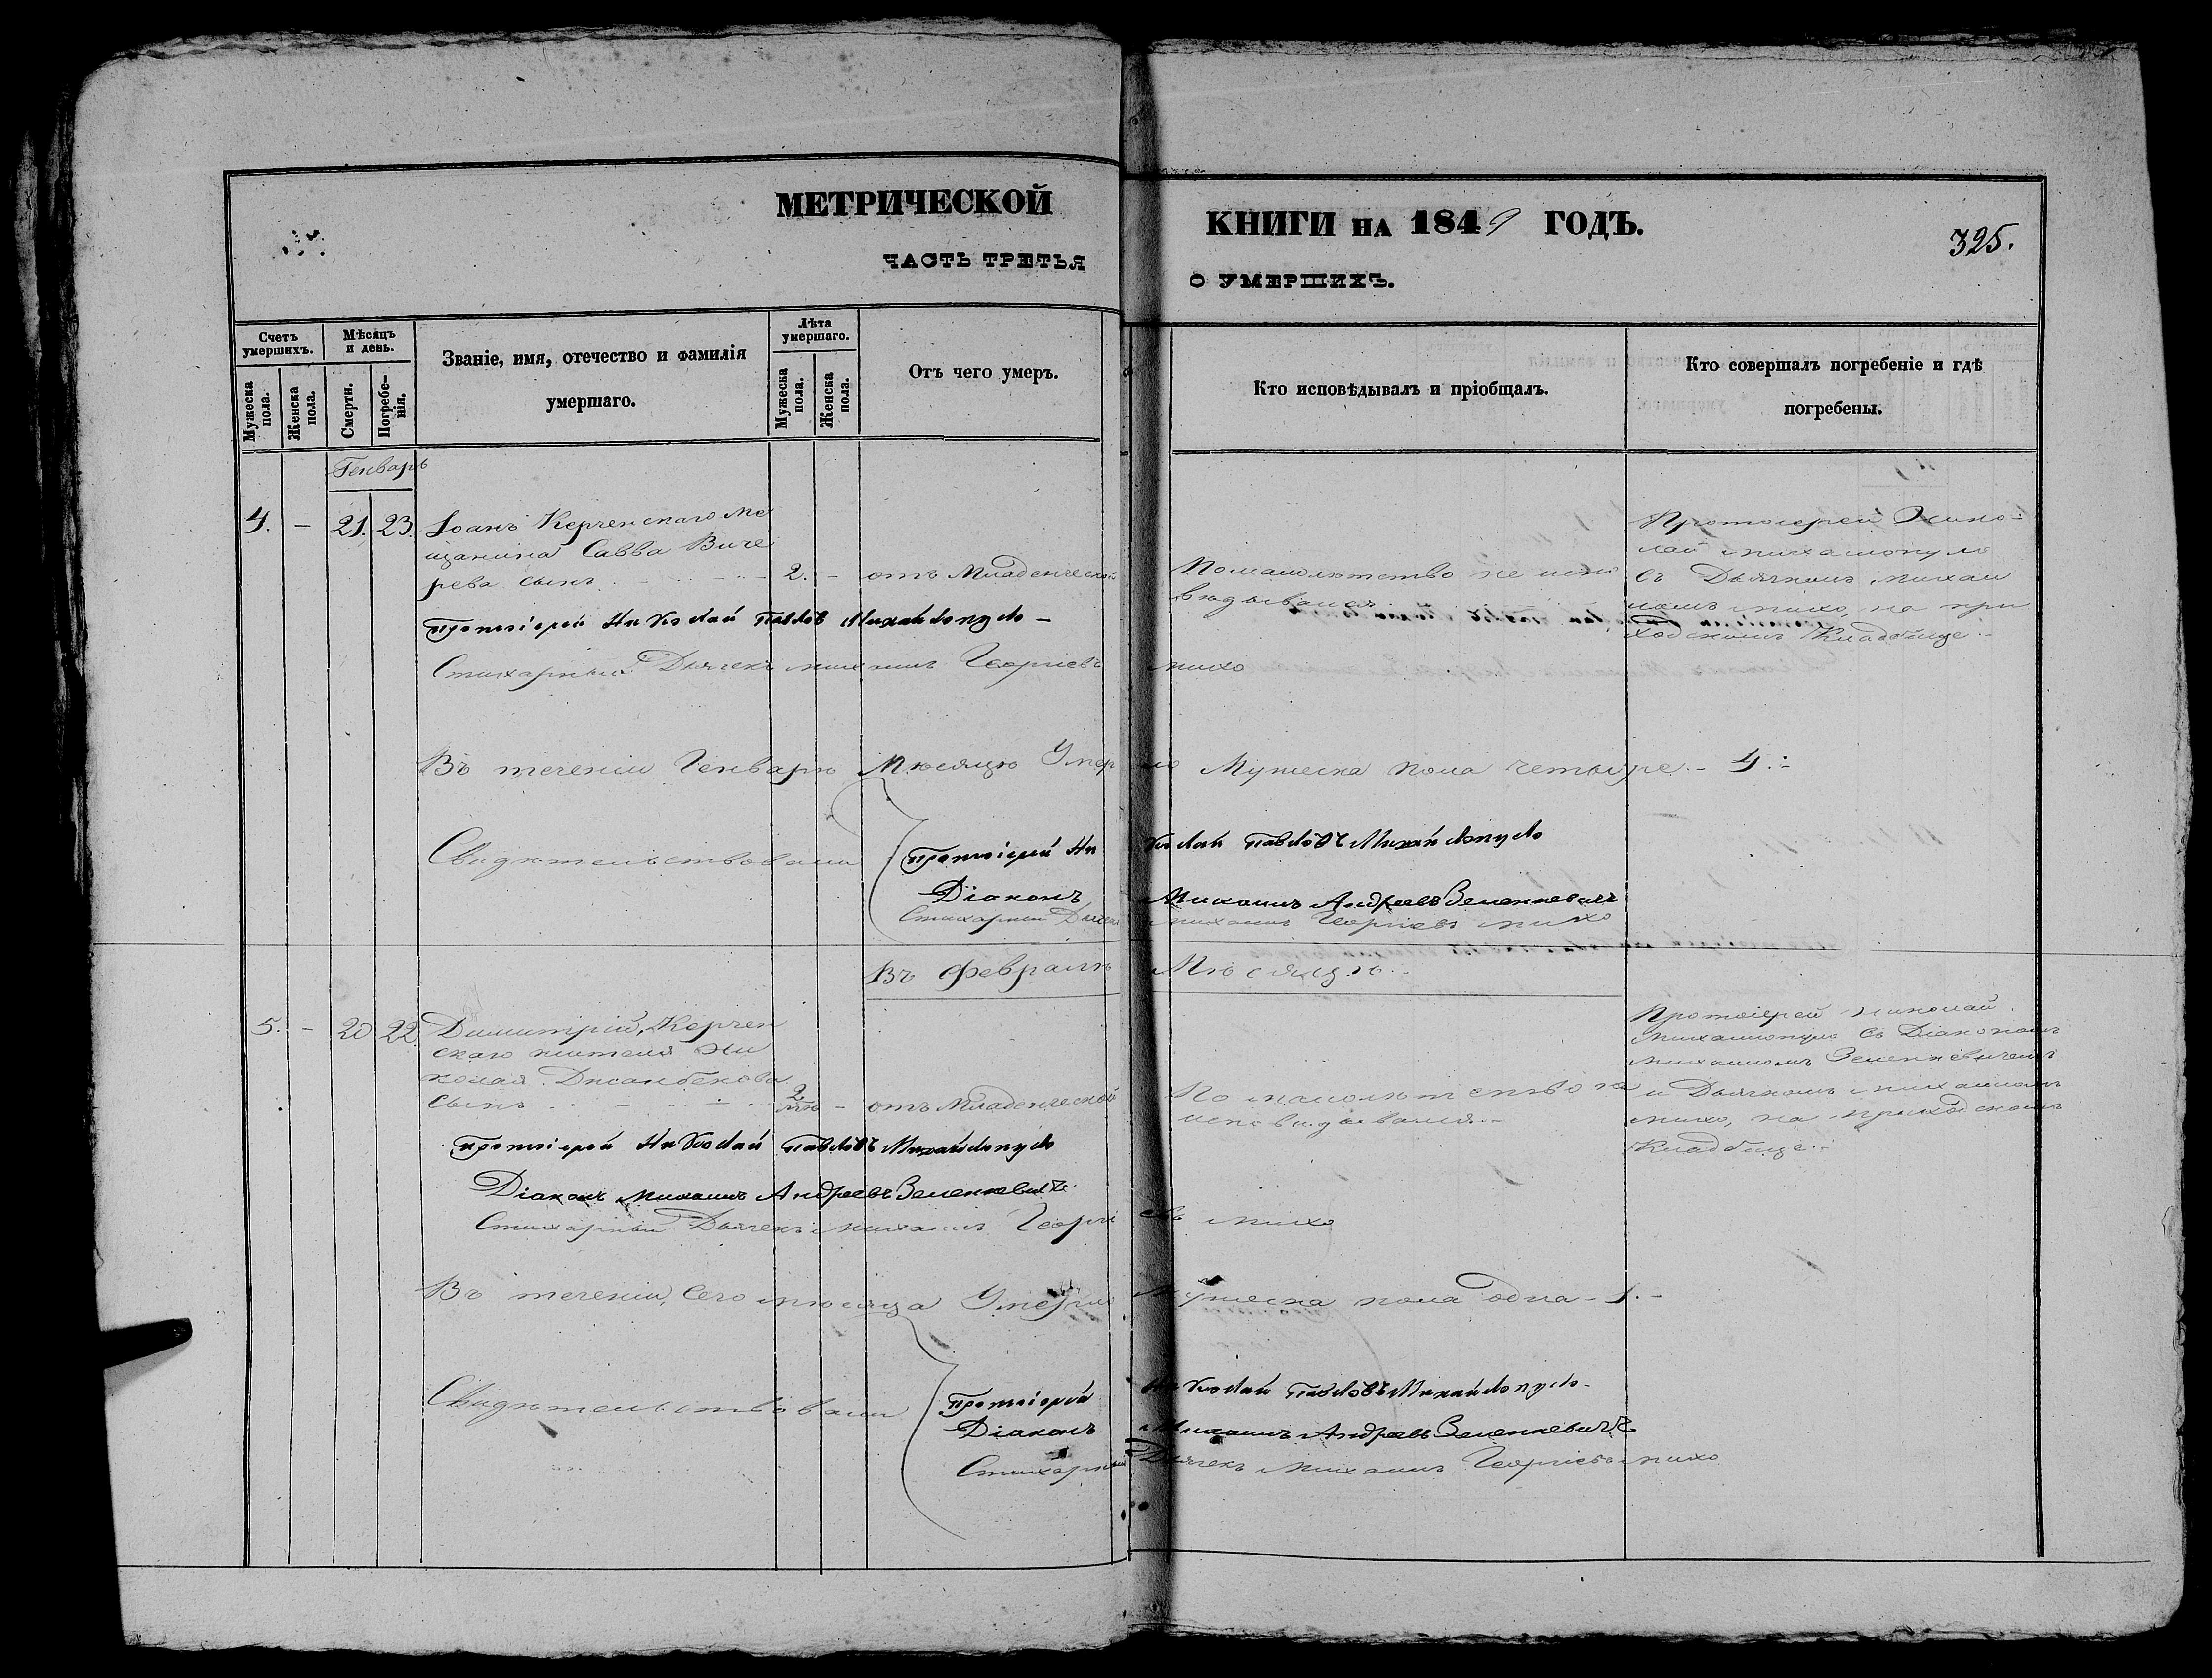 МЕТРИЧЕСКОЙ КНИГИ НА 1849 ГОДЪ.
325.
ЧАСТЬ ТРЕТЬЯ О УМЕРШИХЪ.
Счетъ умершихъ.
Мужеска пола.
Женска пола.
Мѣсяцъ и день.
Смерти.
Погребе-
нія.
Званіе, имя, отечество и фамилія
умершаго.
Лѣта умершаго.
Мужеска пола.
Женска пола.
Отъ чего умеръ.
Кто исповѣдывалъ и пріобщалъ.
Кто совершалъ погребеніе и гдѣ
погребены.
Генварь
4. - 21. 23.
Іоанъ Керченскаго ме
щанина Савва Виче
рева сынъ
2. -
отъ Младенческой
Помалолѣтство не испо
вѣдывался
Протоіерей Нико-
лай Михалопуло
съ Дьячкомъ Михаи
ломъ Михо, на при
ходскомъ Кладбище.-
Протоіерей Николай Павлов Михайлопуло -
Стихарный Дьячекъ Михаилъ Георгіевъ Михо
Въ теченіи Генварѣ Мѣсяцѣ Умерло Мужеска пола четыре.- 4.-
Свидѣтельствовали
Протоіерей Николай Павловъ Михайлопуло
Діаконъ Михаилъ Андреевъ Зеленкевичъ
Стихарный Дьячекъ Михаилъ Георгіевъ Михо
Въ Февралѣ Мѣсяцѣ.-
5. - 20 22.
Димитрій, Керчен
скаго жителя Ни
колая Джанбекова
сынъ
2 -
отъ Младенческой
По малолѣтство не
исповѣдывался.-
Протоіерей Николай
Михалопуло съ Діакономъ
Михаиломъ Зеленкевичемъ
и Дьячкомъ Михаиломъ
Михо, на приходскомъ
Кладбище.-
Протоіерей Николай Павловъ Михайлопуло
Діаконъ Михаилъ Андреевъ Зеленкевичъ
Стихарный Дьячекъ Михаилъ Георгіевъ Михо
Въ теченіи, сего мѣсяца Умерло Мужеска пола одна - 1.-
Свидѣтельствовали
Протоіерей Николай Павловъ Михайлопуло-
Діаконъ Михаилъ Андреевъ Зеленкевичъ
Стихарный Дьячекъ Михаилъ Георгіевъ Михо